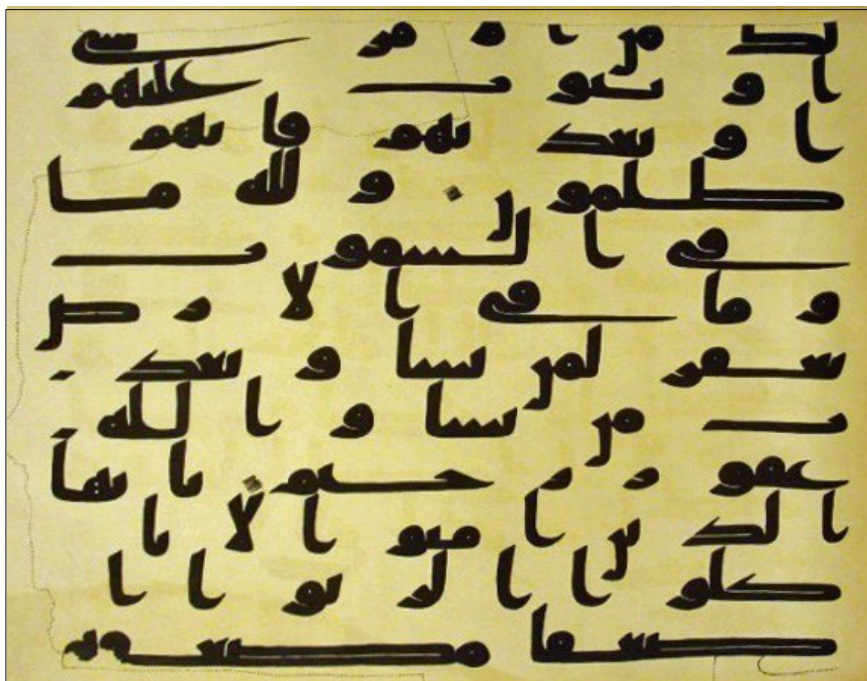 لك من الامر شى
او يتوب عليهم
او يعذبهم فانهم
ظلمون ولله ما
فى السموت
وما فى الارض
يغفر لمن يشا ويعذ
ب من يشا والله
غفور رحيم يايها
الذين امنوا لا تا
كلوا الربوا ا
ضعفا مضعفه